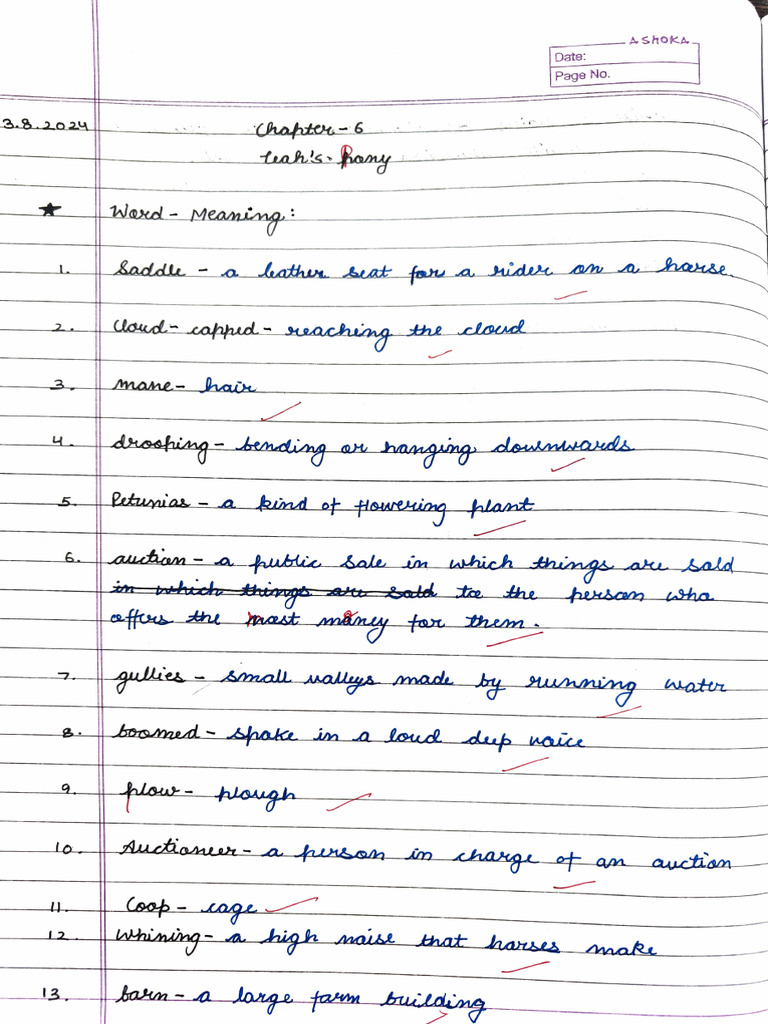 ASHOKA
Date:
Page No.
3.8.2024
Chapter - 6
Leah's. Pony
★ Word - Meaning:
1. Saddle - a leather seat for a rider on a horse.
2. Cloud - capped - reaching the cloud
3. mane - hair
4. drooping - bending or hanging downwards
5. Petunias - a kind of flowering plant
6. auction - a public sale in which things are sold
in which things are sold to the person who
offers the most money for them.
7. gullies - small valleys made by running water
8. boomed - spoke in a loud deep voice
9. plow - plough
10. Auctioneer - a person in charge of an auction
11. Coop - cage
12. Whining - a high noise that horses make
13. barn - a large farm building